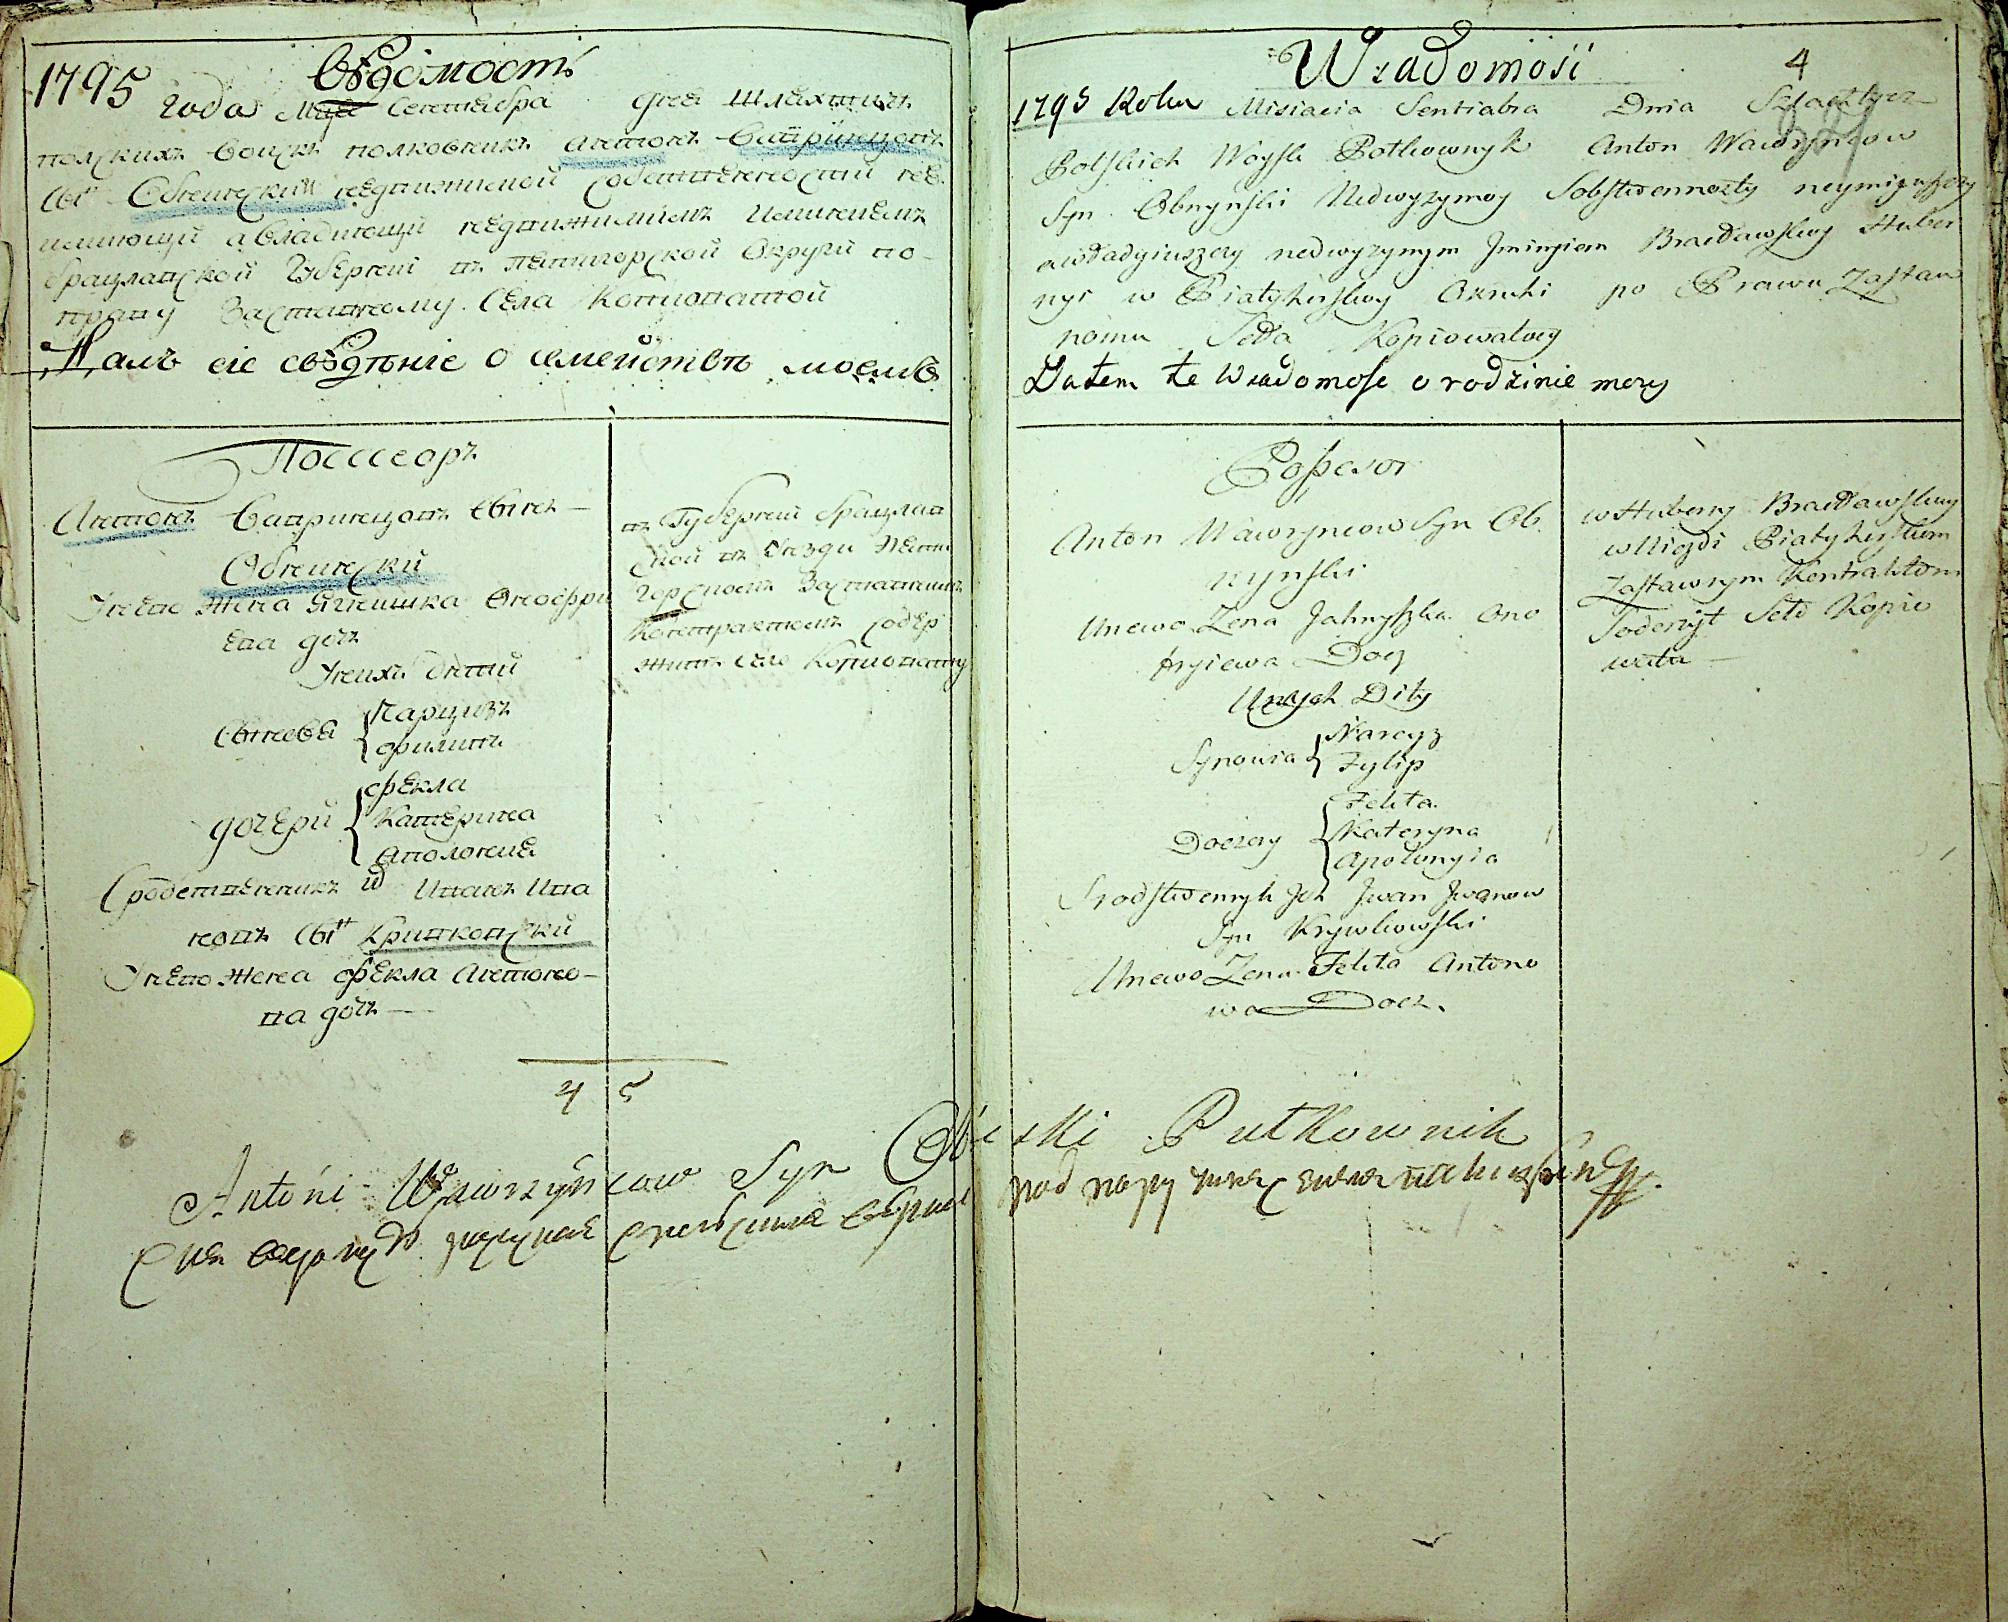 Вѣдомость
1795 года Мца Сентября дня Шляхтичъ
польскихъ войскъ полковникъ Антонъ Вавринцовъ
сынъ Обнинский недвижимой собственности не
имеющий а владиющий недвижимимъ имениемъ
брацлавской Губернии въ пятигорской округи по
праву заставному села Копиоватой
Далъ сіе свѣдѣніе о семействѣ моемъ
Поссесоръ
Антонъ Вавринцовъ сынъ
Обнинский
Унево жена Ягнешка Онофри
ева дочь
Унихъ дитий
Сыновья Нарцизъ
Филипъ
дочери Фекла
Катерина
Аполония
Сродственникъ их Иванъ Ива
новъ сынъ Кривковский
Унево жена Фекла Антоно
ва дочь
въ Губернии брацлав
ской въ уезди Пяти
горскомъ заставнимъ
контрактомъ содер
житъ село Копиовату
4 5
Wiadomość 4
1795 Roku Misiacia Sentiabra Dnia Szlachtycz
Polskich Woysk Połkownyk Anton Wawryncow
Syn Obnynski Nedwyzymoy Sobstwennosty neymiejuszczy
awładyiuszczy nedwyzymym Jminyiem Bracławskoy Huber
nyi w Piatyhorskoy Okruhi po Prawu Zastaw
nomu Seła Kopiowatoey
Dałem te Wiadomosc o rodzinie mezy
Possesor
Anton Wawryncow Syn Ob
nynski
Unewo Zena Jahnyszka Ono
fryiewa Docz
Unych Dity
Synowia Narcyz
Fylip
Doczery Fekła
Kateryna
Apołonyia
Srodstwennyk Jch Jwan Jwanow
Syn Krywkowski
Unewo Zena Fekła Antono
wa Docz.
w Huberny Bracławskoy
w Uiezdi Piatyhorskom
Zastawnym Kontraktom
Soderzyt Seło Kopio
watu
Antoni Wawrzyńcow Syn Obiński Pułkownik